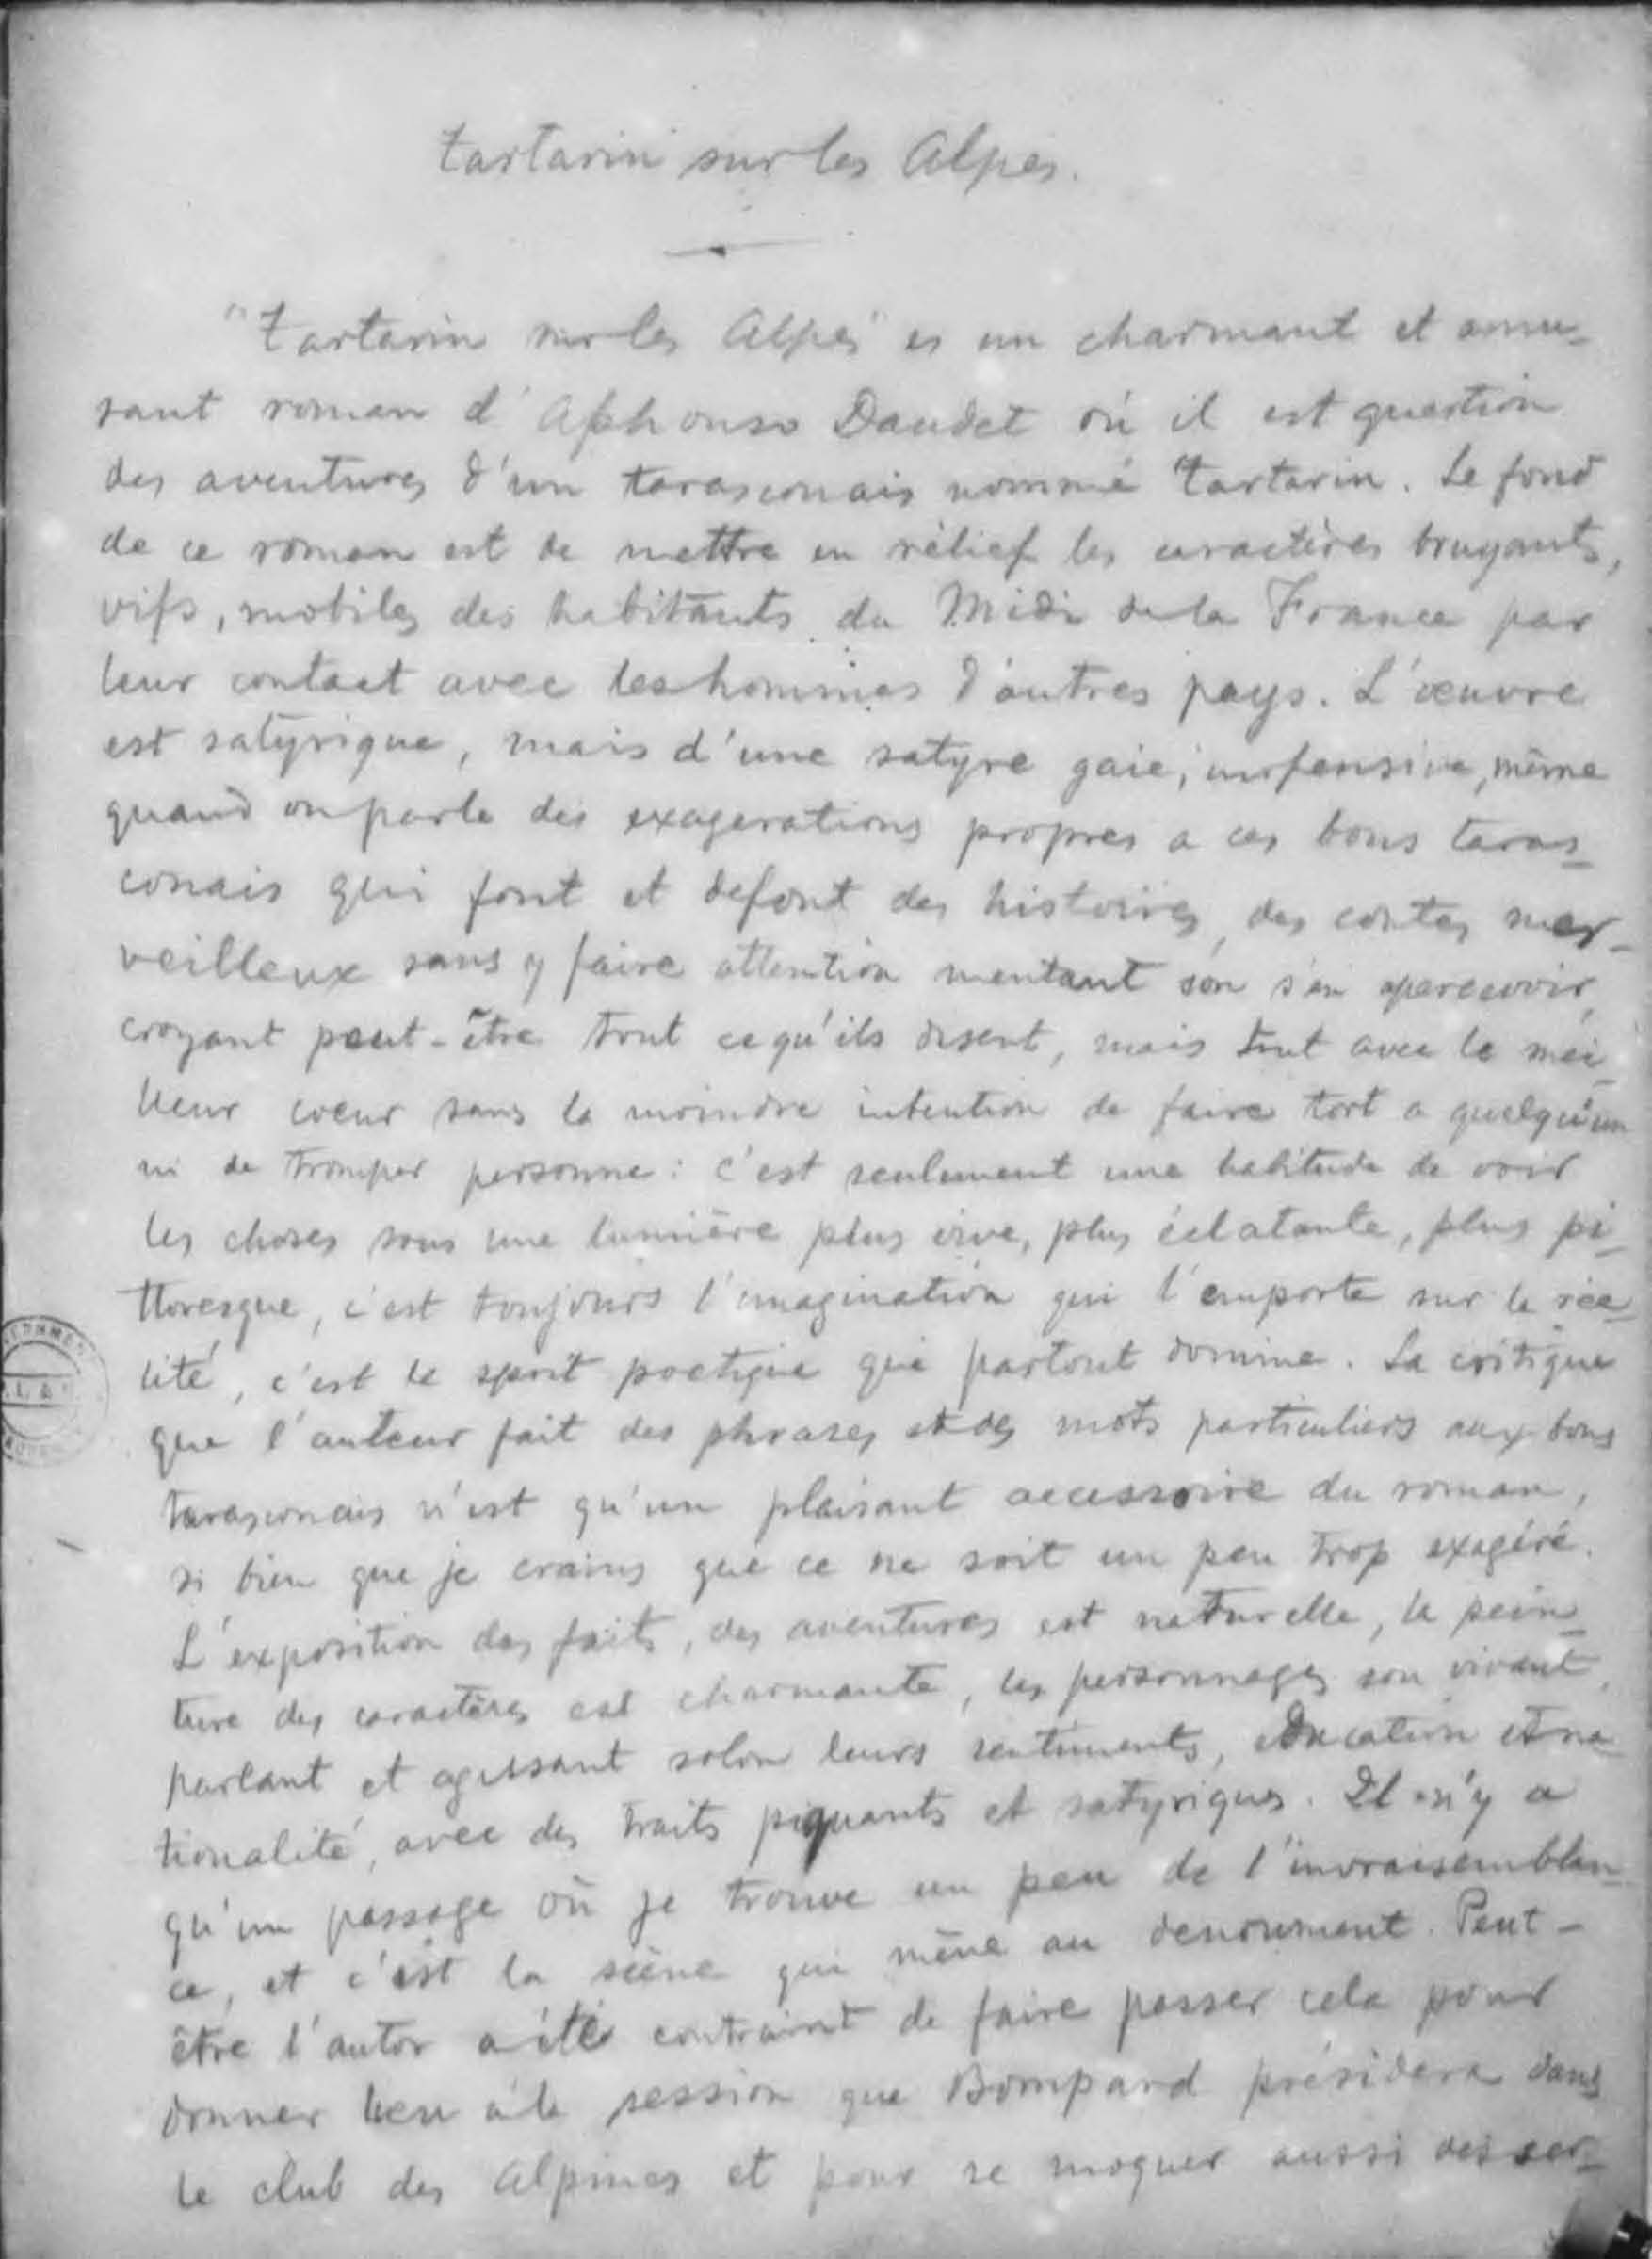 Tartarin sur les Alpes.
"Tartarin sur les Alpes" es un charmant et amu-
sant roman d'Aphonso Daudet où il est question
des aventures d'un tarasconais nommé Tartarin. Le fond
de ce roman est de mettre en rélief les caractères bruyants,
vifs, mobiles des habitants du Midi de la France par
leur contact avec les hommes d'autres pays. L'œuvre
est satyrique, mais d'une satyre gaie, inofensive, même
quand on parle des exagerations propres a ces bons taras-
conais qui font et defont des histoires, des contes mer-
veilleux sans y faire attention mentant son s'en apercevoir,
croyant peut-être tout ce qu'ils disent, mais tout avec le mei-
lleur coeur sans la moindre intention de faire tort a quelqu'un
ni de tromper personne: c'est seulement une habitude de voir
les choses sous une lumière plus vive, plus éclatante, plus pi-
ttoresque, c'est toujours l'imagination qui l'emporte sur la réa-
lité, c'est le sprit poetique qui partout domine. La critique
que l'auteur fait des phrases et des mots particuliers aux bons
tarasconais n'est qu'un plaisant accessoire du roman,
si bien que je crains que ce ne soit un peu trop exagéré.
L'exposition des faits, des aventures est naturelle, la pein-
ture des caractères est charmante, les personnages son vivant,
parlant et agissant selon leurs sentiments, education et na-
tionalité, avec des traits piquants et satyriques. Il n'y a
qu'un passage où je trouve un peu de l'invraisemblan-
ce, et c'est la scène qui mène au denoument. Peut-
être l'autor a été contraint de faire passer cela pour
donner lieu à la session que Bompard présidera dans
le club des Alpines et pour se moquer aussi des ser-